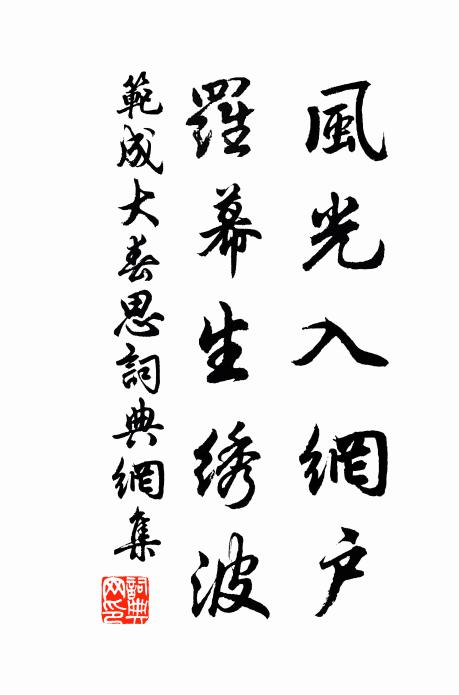 風光入網户
羅幕生绣波
範成大春思詞典網集
詞典网印